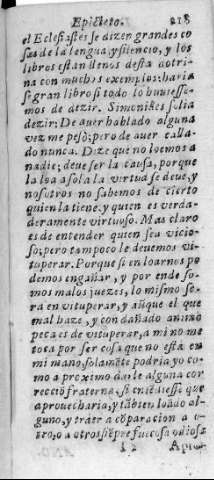 Epicteto. 218
el Eclesiastes se dizen grandes co
sas de la lengua, y silencio, y los
libros estan llenos desta dotri-
na con muchos exemplos: haria
se gran libro si todo lo huuiesse-
mos de dezir. Simonides solia
dezir: De auer hablado alguna
vez me pesò; pero de auer calla-
do nunca. Dize que no loemos a
nadie; deue ser la causa, porque
la loa a sola la virtud se deue, y
nosotros no sabemos de cierto
quien la tiene, y quien es verda-
deramente virtuoso. Mas claro
es de entender quien sea vicio-
so; pero tampoco le deuemos vi-
tuperar. Porque si en loarnos po
demos engañar, y por ende so-
mos malos juezes, lo mismo se-
ra en vituperar, y aũque el que
mal haze, y con dañado animo
peca es de vituperar, a mi no me
toca por ser cosa que no està en
mi mano, solamẽte podria yo co-
mo a proximo darle alguna cor
reccion fraterna, si entẽdiesse que
aprouecharia, y tãbien loado al-
guno, y traer a cõparacion a
otro, o a otros siẽpre fue cosa odiosa